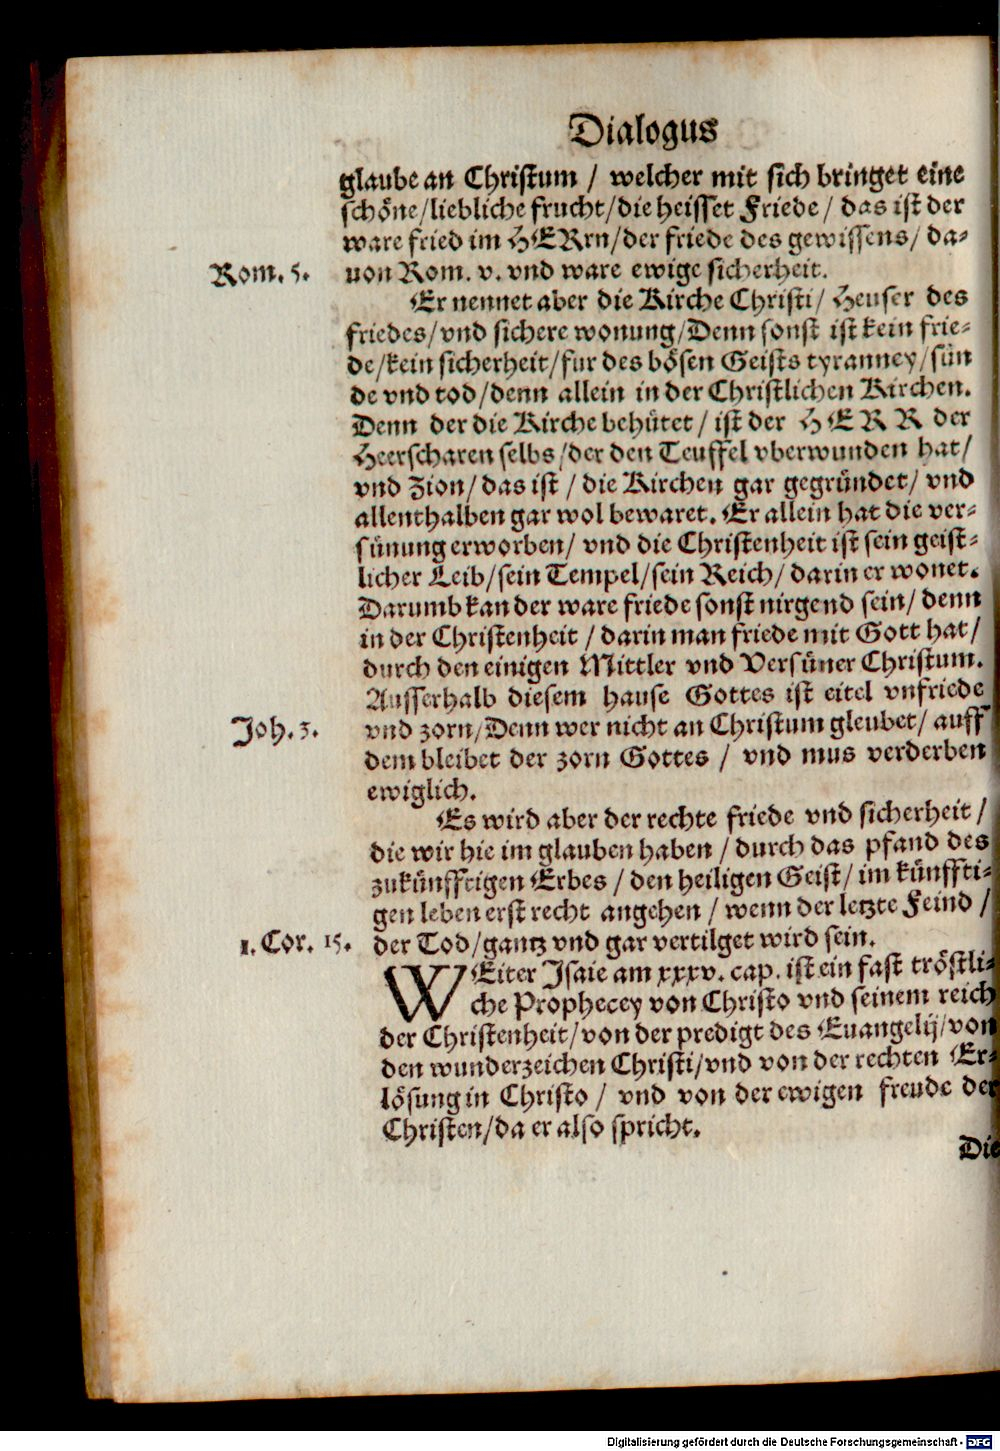 Dialogus
glaube an Christum / welcher mit sich bringet eine
schöne/liebliche frucht/die heisset Friede / das ist der
ware fried im HERrn/der friede des gewissens/ da-
Rom. 5. uon Rom. v. vnd ware ewige sicherheit.
Er nennet aber die Kirche Christi/ Heuser des
friedes/vnd sichere wonung/Denn sonst ist kein frie-
de/kein sicherheit/fur des bösen Geists tyranney/sün
de vnd tod/denn allein in der Christlichen Kirchen.
Denn der die Kirche behütet / ist der HERR der
Heerscharen selbs/der den Teuffel vberwunden hat/
vnd Zion/das ist / die Kirchen gar gegründet/ vnd
allenthalben gar wol bewaret. Er allein hat die ver-
sünung erworben/ vnd die Christenheit ist sein geist-
licher Leib/sein Tempel/sein Reich/darin er wonet.
Darumb kan der ware friede sonst nirgend sein/ denn
in der Christenheit / darin man friede mit Gott hat/
durch den einigen Mittler vnd Versüner Christum.
Ausserhalb diesem hause Gottes ist eitel vnfriede
Joh. 3. vnd zorn/Denn wer nicht an Christum gleubet/ auff
dem bleibet der zorn Gottes / vnd mus verderben
ewiglich.
Es wird aber der rechte friede vnd sicherheit /
die wir hie im glauben haben / durch das pfand des
zukünfftigen Erbes / den heiligen Geist/ im künffti-
gen leben erst recht angehen / wenn der letzte Feind /
1. Cor. 15. der Tod/gantz vnd gar vertilget wird sein.
WEiter Jsaie am xxxv. cap. ist ein fast tröstli-
che Prophecey von Christo vnd seinem reich
der Christenheit/von der predigt des Euangelij/von
den wunderzeichen Christi/vnd von der rechten Er-
lösung in Christo / vnd von der ewigen freude der
Christen/da er also spricht.
Die
Digitalisierung gefördert durch die Deutsche Forschungsgemeinschaft - DFG